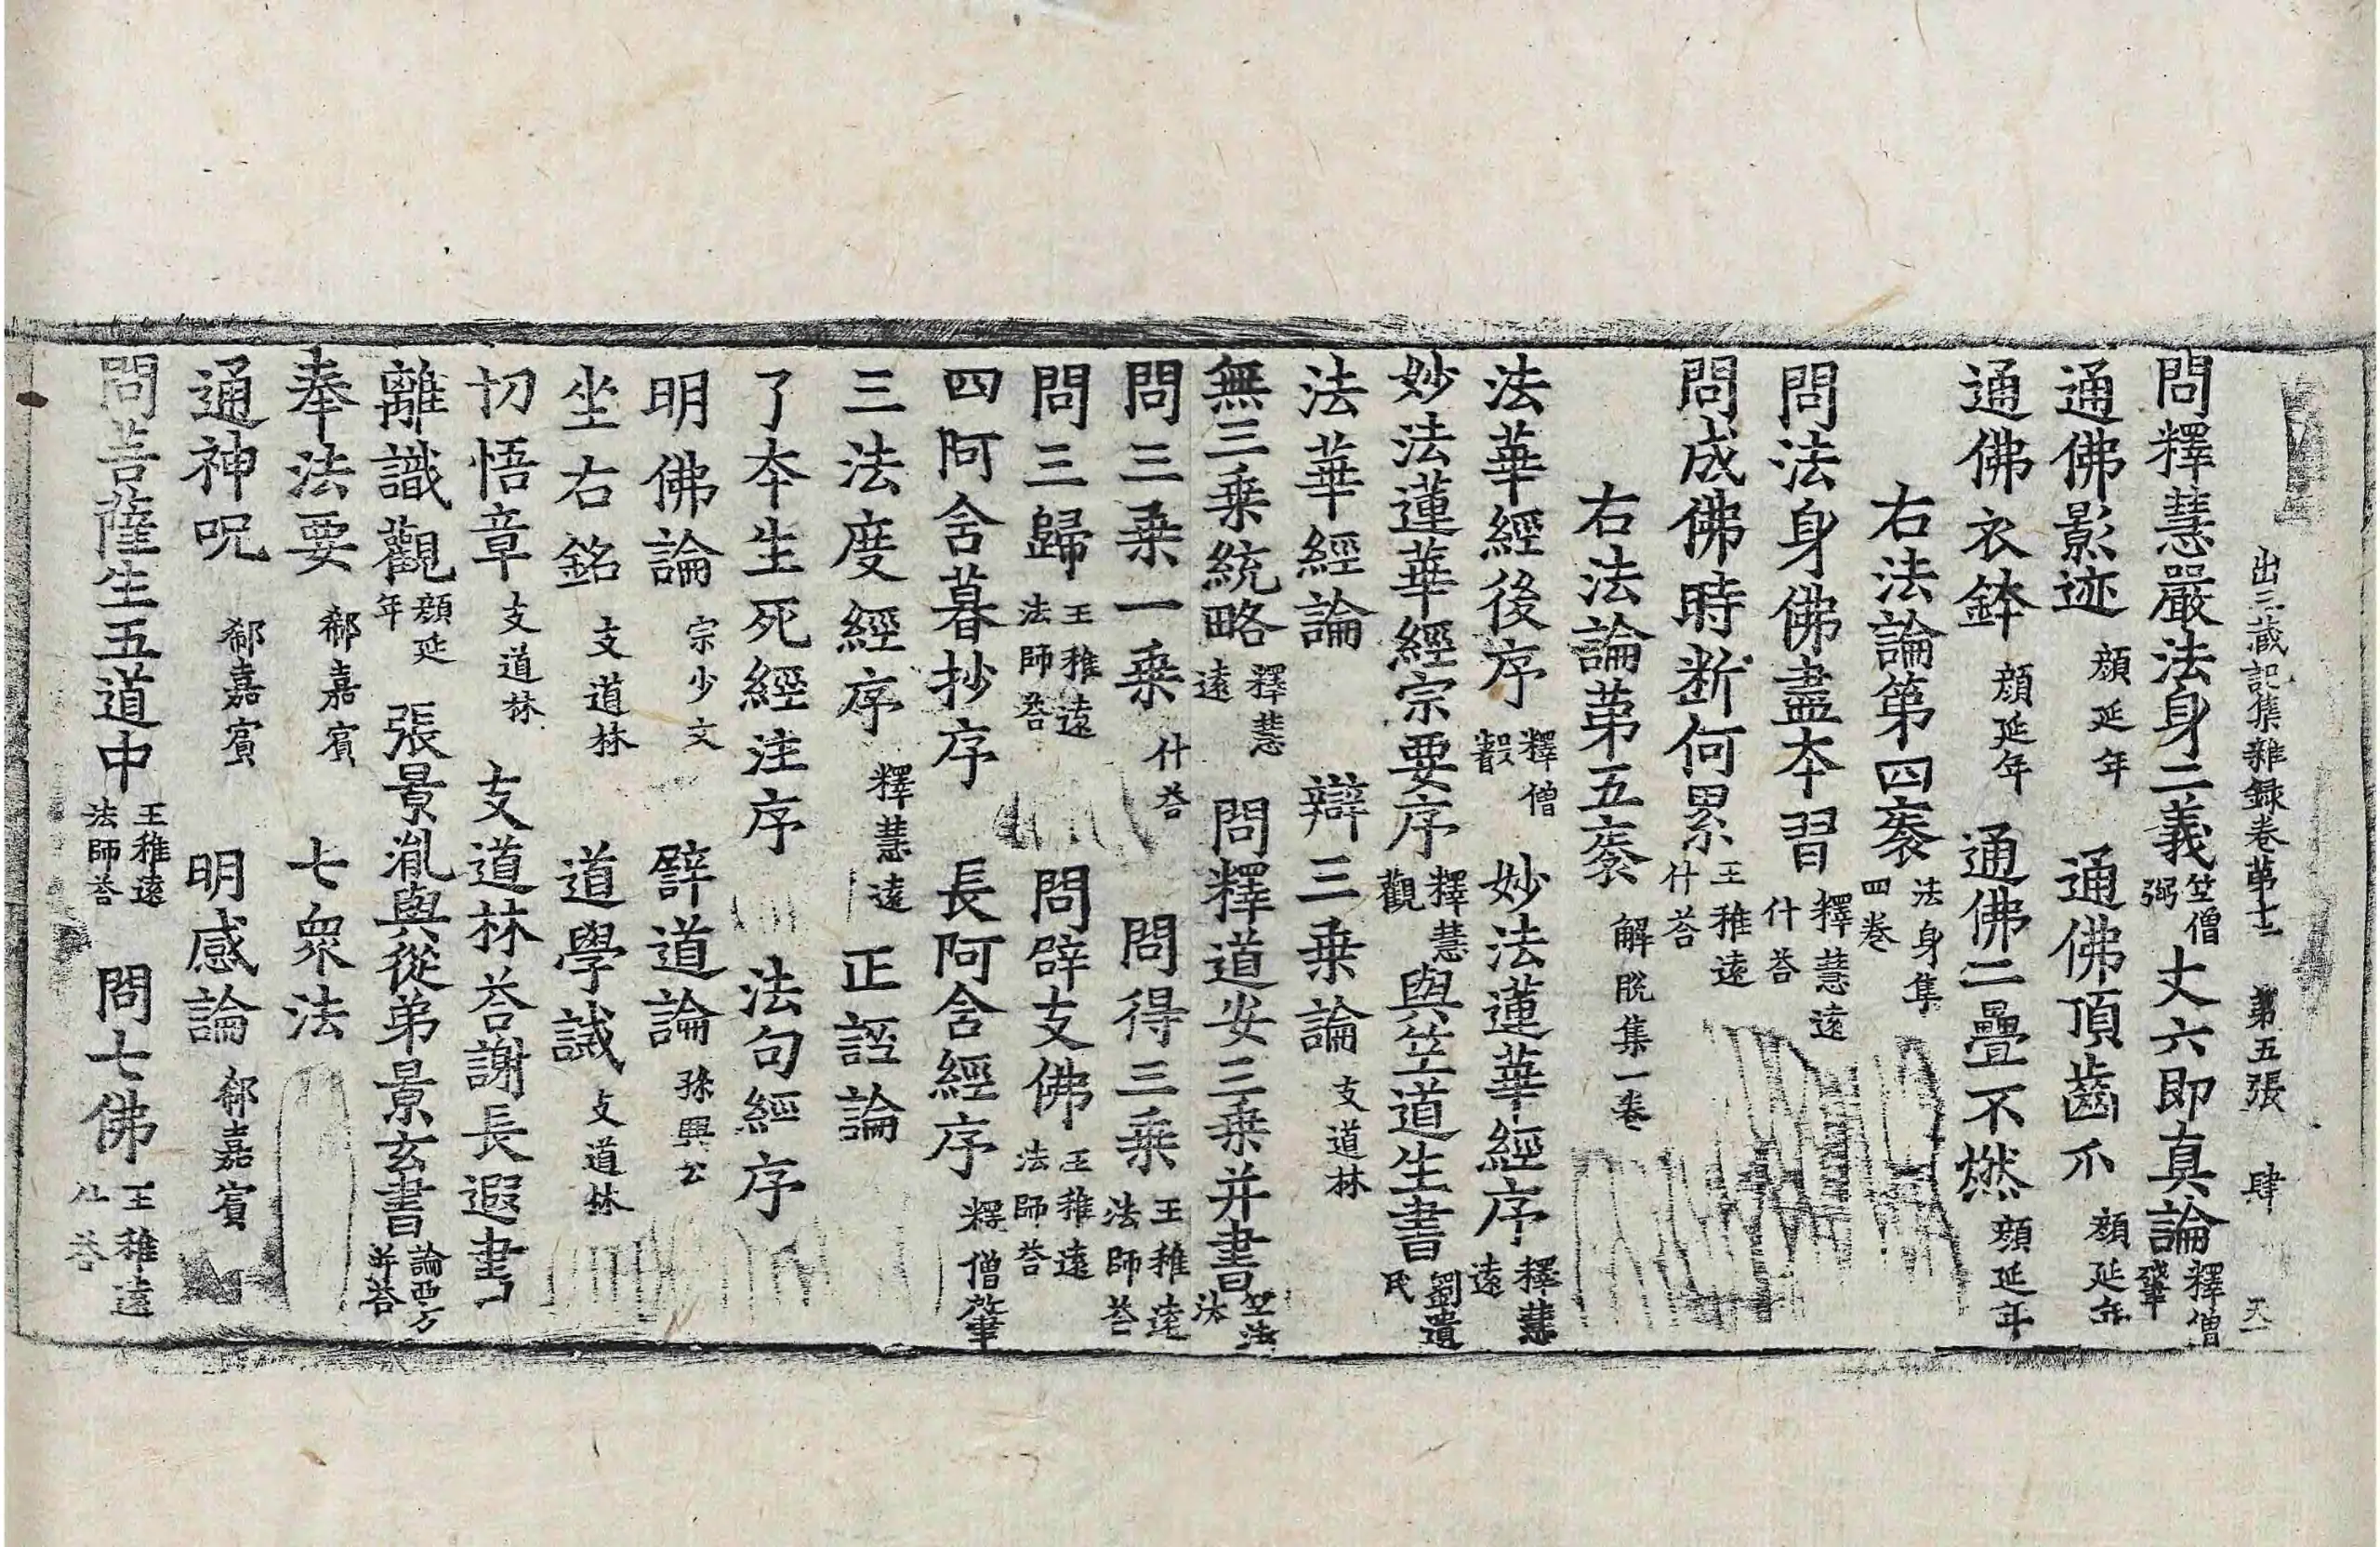 出三藏記集雜録卷第十二　第五張　肆
問釋慧嚴法身二義竺僧弼　丈六即真論釋僧肇
通佛影迹顏延年　通佛頂齒爪顏延年
通佛衣鉢顏延年　通佛二疊不燃顏延年
右法論第四袠法身集四卷
問法身佛盡本習釋慧遠什荅
問成佛時斷何累王稚遠什荅
右法論第五袠解脫集一卷
法華經後序釋僧叡　妙法蓮華經序釋慧遠
妙法蓮華經宗要序釋慧觀　與竺道生書劉遺民
法華經論　辯三乗論支道林
無三乗統略釋慧遠　問釋道安三乗并書竺法汰
問三乗一乗什荅　問得三乗王稚遠法師荅
問三歸王稚遠法師荅　問辟支佛王稚遠法師荅
四阿含暮抄序　長阿含經序釋僧肇
三法度經序釋慧遠　正誣論
了本生死經注序　法句經序
明佛論宗少文　譬道論孫興公
坐右銘支道林　道學誡支道林
切悟章支道林　支道林荅謝長遐書
離識觀顏延年　張景胤與從弟景玄書論西方并荅
奉法要郗嘉賓　七衆法
通神呪郗嘉賓　明感論郗嘉賓
問菩薩生五道中王稚遠法師荅　問七佛王稚遠什荅